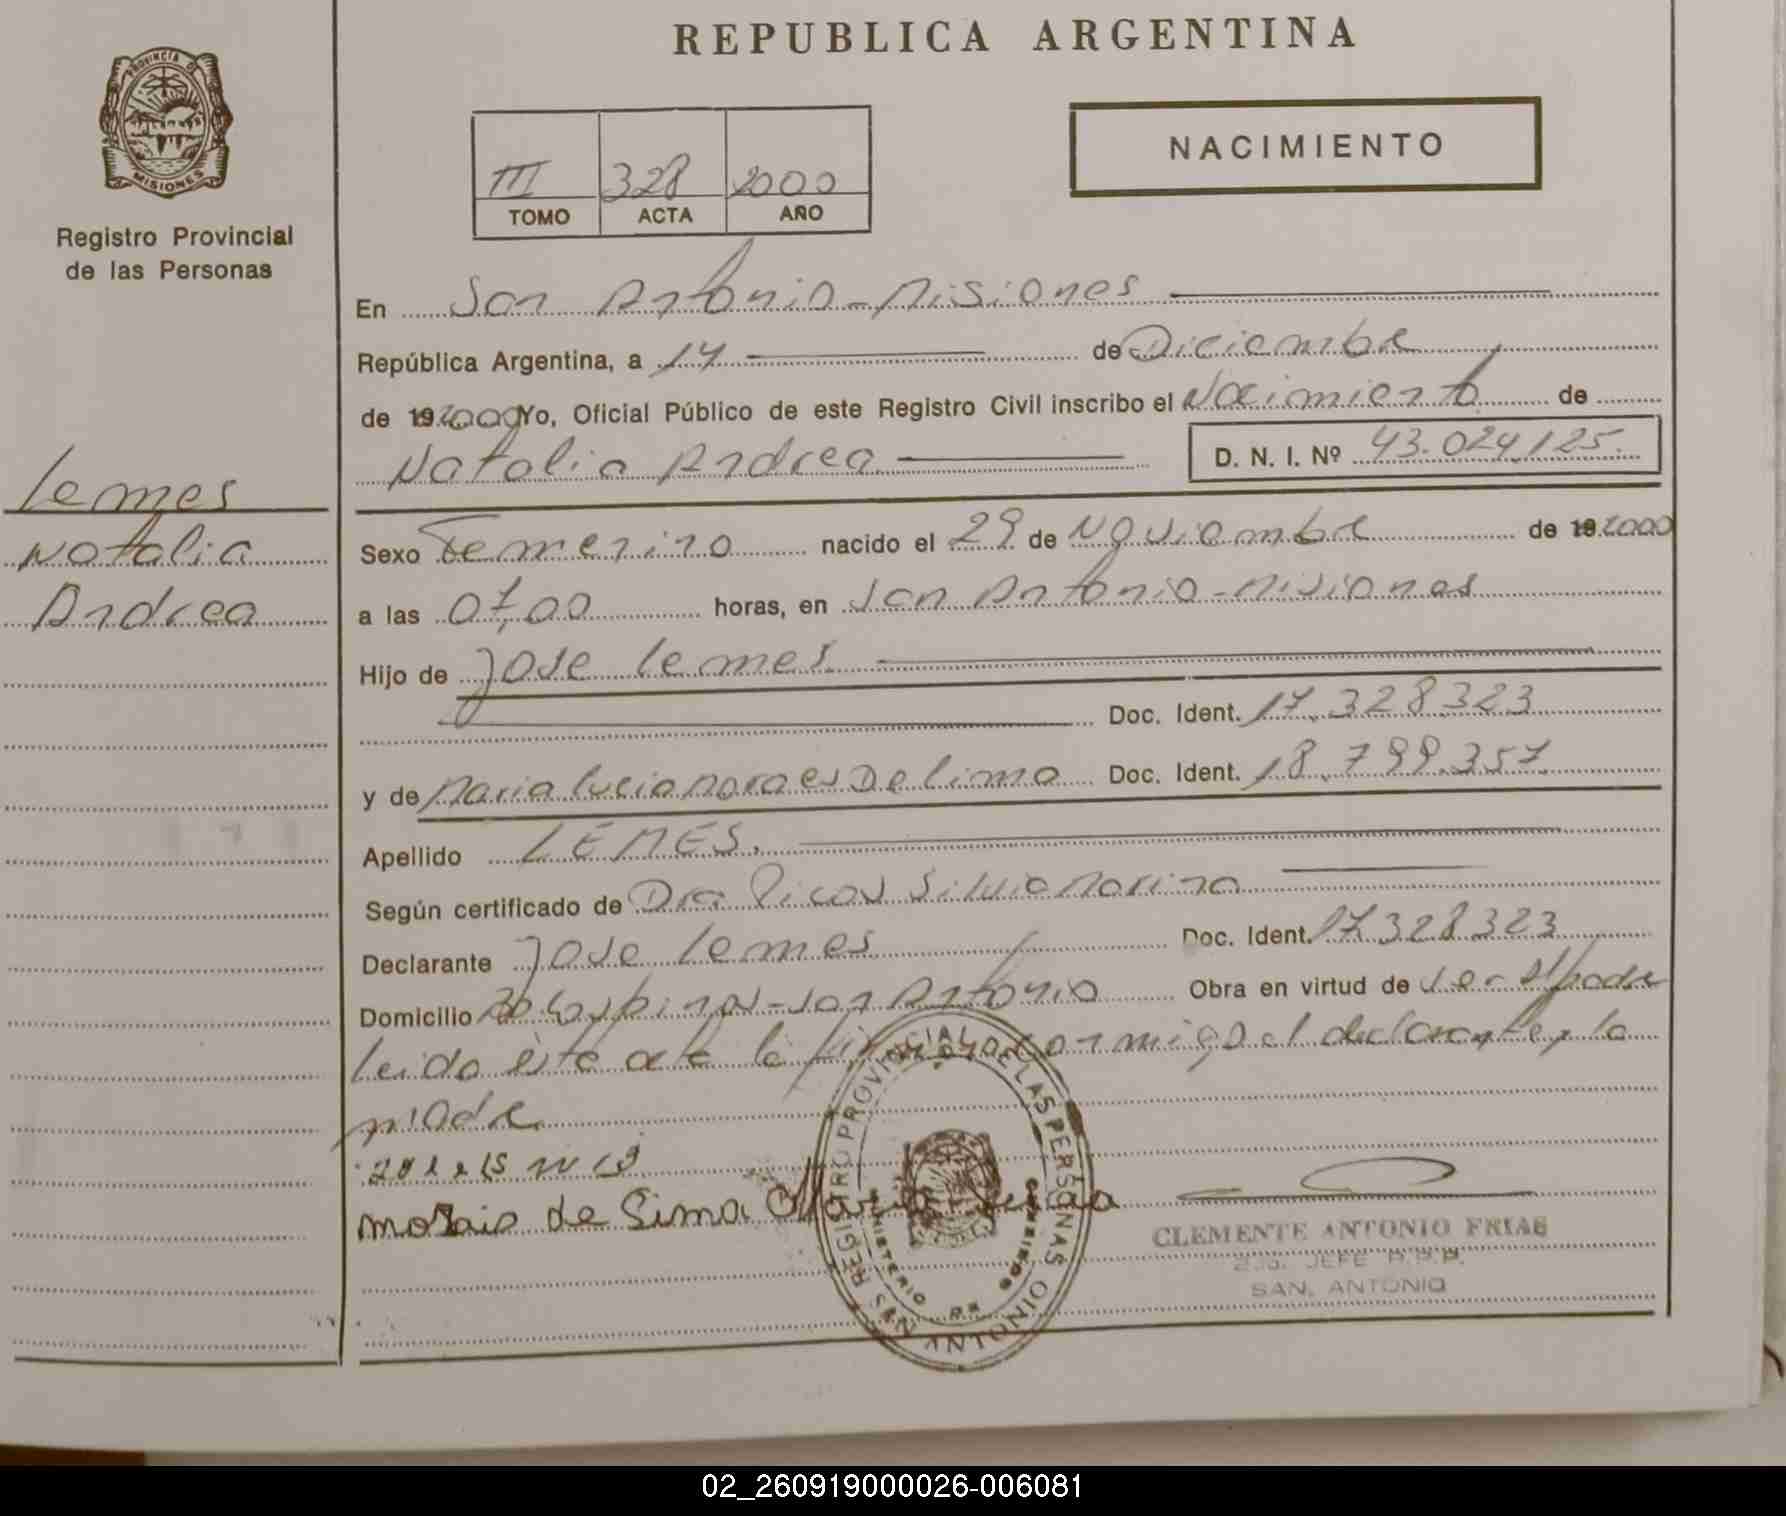 REPUBLICA ARGENTINA
PROVINCIA DE
MISIONES
Registro Provincial
de las Personas
NACIMIENTO
III 328 2000
TOMO ACTA AÑO
En San Antonio - Misiones
República Argentina, a 14 de Diciembre
de 19 2000 Yo, Oficial Público de este Registro Civil inscribo el Nacimiento de
Natalia Andrea D. N. I. Nº 43.024.125.
Lemes
Natalia
Andrea
Sexo Femenino nacido el 29 de Noviembre de 19 2000
a las 07,00 horas, en San Antonio - Misiones
Hijo de Jose Lemes
Doc. Ident. 17.328.323
y de Maria Lucia Moraes De Lima Doc. Ident. 18.799.357
Apellido LEMES.
Según certificado de Dra Picos Silvia Marina
Declarante Jose Lemes Doc. Ident. 17.328.323
Domicilio San Antonio Obra en virtud de ser el padre
leido este acta la firma conmigo el declarante y la
madre
Morais de Lima Maria Lucia
REGISTRO PROVINCIAL DE LAS PERSONAS
MINISTERIO DE GOBIERNO
SAN ANTONIO
CLEMENTE ANTONIO FRIAS
2do. JEFE R.P.P.
SAN. ANTONIO
02_260919000026-006081